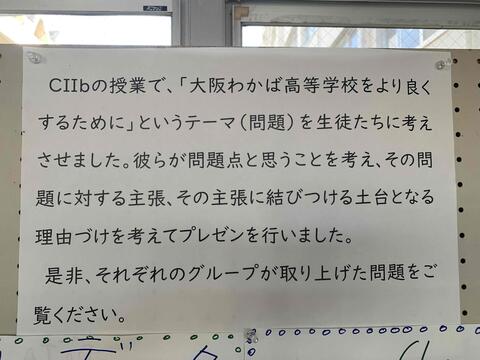 CIIbの授業で、「大阪わかば高等学校をより良く
するために」というテーマ（問題）を生徒たちに考え
させました。彼らが問題点と思うことを考え、その問
題に対する主張、その主張に結びつける土台となる
理由づけを考えてプレゼンを行いました。
是非、それぞれのグループが取り上げた問題をご
覧ください。